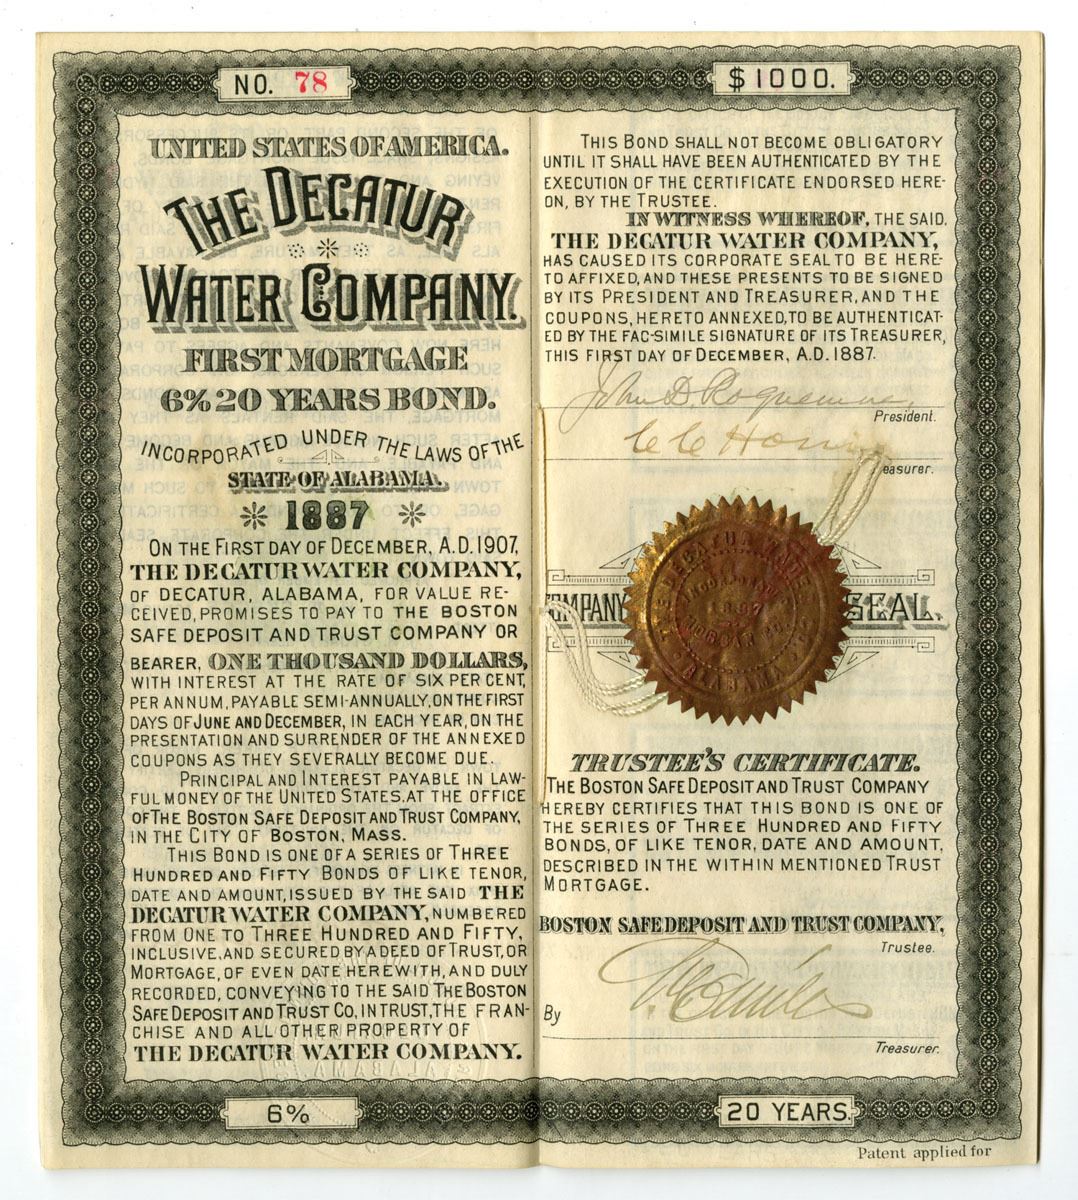 NO. 78
$1000.
UNITED STATES OF AMERICA.
THE DECATUR
WATER COMPANY.
FIRST MORTGAGE
6% 20 YEARS BOND.
INCORPORATED UNDER THE LAWS OF THE
STATE OF ALABAMA.
1887
ON THE FIRST DAY OF DECEMBER, A.D. 1907,
THE DECATUR WATER COMPANY,
OF DECATUR, ALABAMA, FOR VALUE RE-
CEIVED, PROMISES TO PAY TO THE BOSTON
SAFE DEPOSIT AND TRUST COMPANY OR
BEARER, ONE THOUSAND DOLLARS,
WITH INTEREST AT THE RATE OF SIX PER CENT,
PER ANNUM, PAYABLE SEMI-ANNUALLY, ON THE FIRST
DAYS OF JUNE AND DECEMBER, IN EACH YEAR, ON THE
PRESENTATION AND SURRENDER OF THE ANNEXED
COUPONS AS THEY SEVERALLY BECOME DUE.
PRINCIPAL AND INTEREST PAYABLE IN LAW-
FUL MONEY OF THE UNITED STATES, AT THE OFFICE
OF THE BOSTON SAFE DEPOSIT AND TRUST COMPANY,
IN THE CITY OF BOSTON, MASS.
THIS BOND IS ONE OF A SERIES OF THREE
HUNDRED AND FIFTY BONDS OF LIKE TENOR,
DATE AND AMOUNT, ISSUED BY THE SAID THE
DECATUR WATER COMPANY, NUMBERED
FROM ONE TO THREE HUNDRED AND FIFTY,
INCLUSIVE, AND SECURED BY A DEED OF TRUST, OR
MORTGAGE, OF EVEN DATE HEREWITH, AND DULY
RECORDED, CONVEYING TO THE SAID THE BOSTON
SAFE DEPOSIT AND TRUST CO, IN TRUST, THE FRAN-
CHISE AND ALL OTHER PROPERTY OF
THE DECATUR WATER COMPANY.
6%
THIS BOND SHALL NOT BECOME OBLIGATORY
UNTIL IT SHALL HAVE BEEN AUTHENTICATED BY THE
EXECUTION OF THE CERTIFICATE ENDORSED HERE-
ON, BY THE TRUSTEE.
IN WITNESS WHEREOF, THE SAID.
THE DECATUR WATER COMPANY,
HAS CAUSED ITS CORPORATE SEAL TO BE HERE-
TO AFFIXED, AND THESE PRESENTS TO BE SIGNED
BY ITS PRESIDENT AND TREASURER, AND THE
COUPONS, HERETO ANNEXED, TO BE AUTHENTICAT-
ED BY THE FAC-SIMILE SIGNATURE OF ITS TREASURER,
THIS FIRST DAY OF DECEMBER, A.D. 1887.
John D. Roquemore
President.
C C Harris
easurer.
OMPANY SEAL.
THE DECATUR WATER CO.
INCORPORATED
1887
MORGAN CO.
ALABAMA
TRUSTEE'S CERTIFICATE.
THE BOSTON SAFE DEPOSIT AND TRUST COMPANY
HEREBY CERTIFIES THAT THIS BOND IS ONE OF
THE SERIES OF THREE HUNDRED AND FIFTY
BONDS, OF LIKE TENOR, DATE AND AMOUNT,
DESCRIBED IN THE WITHIN MENTIONED TRUST
MORTGAGE.
BOSTON SAFE DEPOSIT AND TRUST COMPANY,
Trustee.
By
Treasurer.
20 YEARS.
Patent applied for